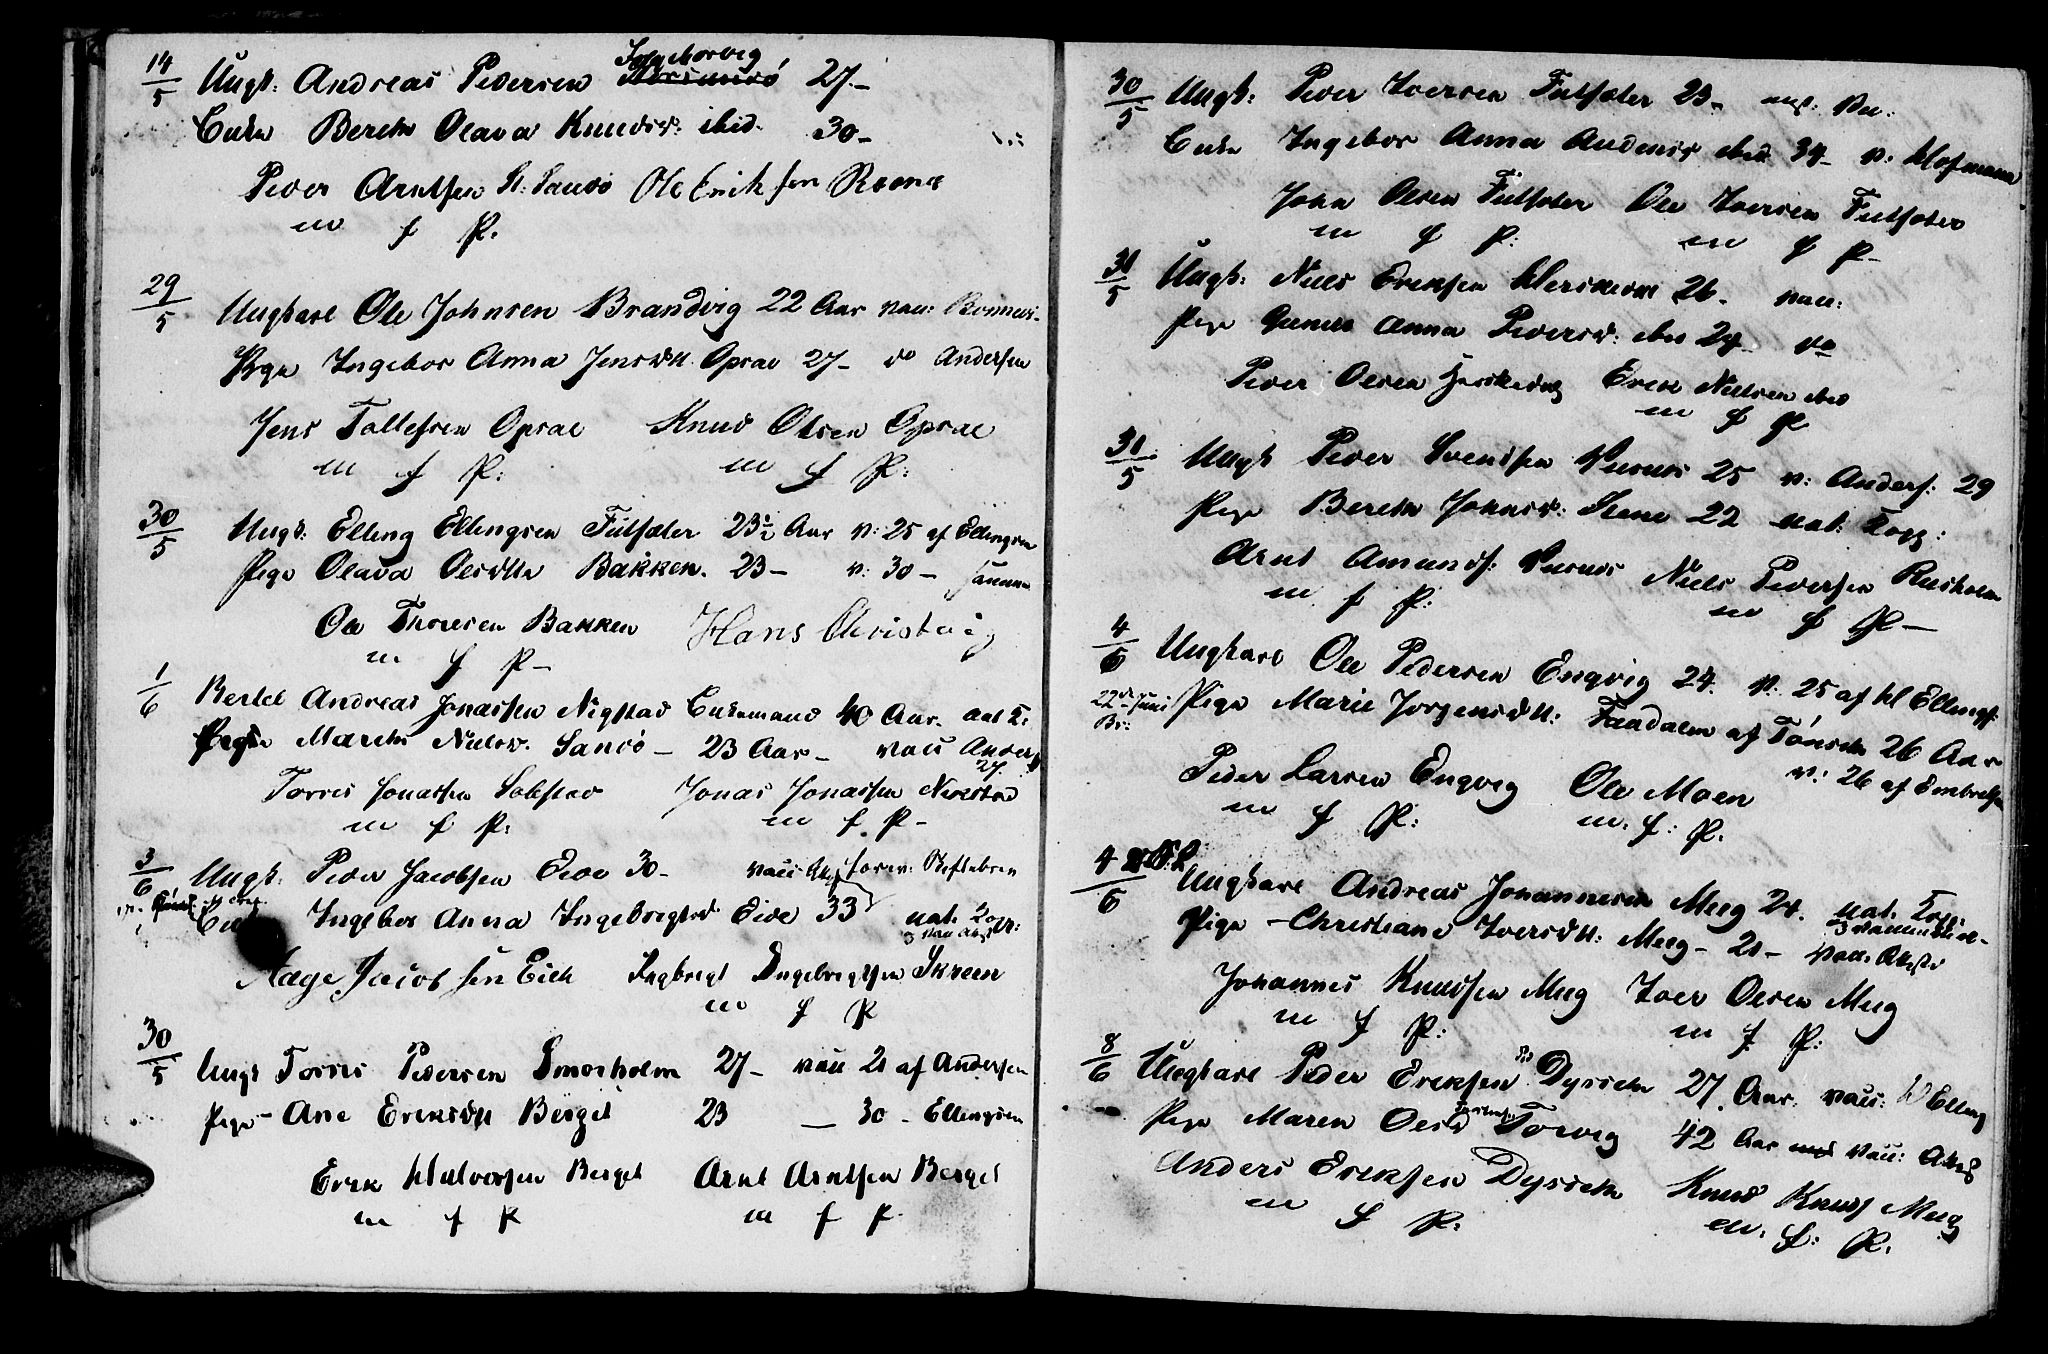 14/5 Ungk: Andreas Pedersen 27.-
Enke Berethe Olava Knudsd: ibid. 30-
Peder Arntsen St: Sandö Ole Eriksen
m f P.
29/5 Ungkarl Ole Johnsen Brandvig 22 Aar vac:
Pige Ingebor Anna Jensdtt. Opdal 27- do Andersen
Jens Tollefsen Opdal Knud Olsen Opdal
m f P: m f P:
30/5 Ungk: Elling Ellingsen Futsæter 23½ Aar v: 25 af Ellingsen
Pige Olava Olsdtter Bakken. 23- v: 30- samme
Ole Thoresen Bakken Hans Christ
m f P-
1/6 Bertel Andreas Jonassen Nigstad Enkemand 40 Aar.
Pige Marethe Nielsd: Sandö- 23 Aar- vac Anders 27.
Torris Jonassen Solstad Jonas Jonassen
m f P. m f P-
3/6 Ungk: Peder Jacobsen Eide 30-
Ingebor Anna Ingebrigtsd. Eide 33 nat. Kopp:
Aage Jacobsen Eide Ingbregt Ingebrigtsen Skreen
m f P
30/5 Ungk Torris Pedersen Smorholm 27- vac 21 af Andersen
Pige- Ane Eriksdtt Berget 23 - 30- Ellingsen
Erik Halvorsen Berget Arnt Arntsen Berget
m f P m f P
30/5 Ungk: Peder Iversen Futsæter 23-
Enke Ingebor Anna Andersd ibid 34- v:
John Olsen Futsæter Ole Iversen Futsæter
m f P: m f P-
31/5 Ungk: Niels Eriksen 26- vac:
Pige Anna Pedersd: ibid 24- do
Peder Olsen Erik Nielsen ibid
m f P
31/5 Ungk Peder Svendsen 25 v: Anders: 29
Pige Berethe Johnsd: Stene 22 nat: Kopp:
Arnt Amunds: Niels Pedersen Rusholm
m f P: m f P-
4/6 Ungkarl Ole Pedersen Engvig 24. v: 25 af H Ellingsf:
Pige Marie Jorgensdtt: af 26 Aar
v: 26 af
Peder Larsen Engvig Ole Moen
m f P: m. f: P.
4/6 Ungkarl Andreas Johannesen Meeg 24. nat. Kopp:
Pige- Christiane Iversdtt: Meeg- 21- vac.
Johannes Knudsen Meeg Iver Olsen Meeg
m f P: m f P:
8/6 Ungkarl Peder Eriksen Dyrseth 27 Aar. vac: H Elling
Pige Maren Olsd Torvig 42 Aar vac:
Anders Eriksen Dyrseth Knud Knuds Meeg
m f P: m. f: P.